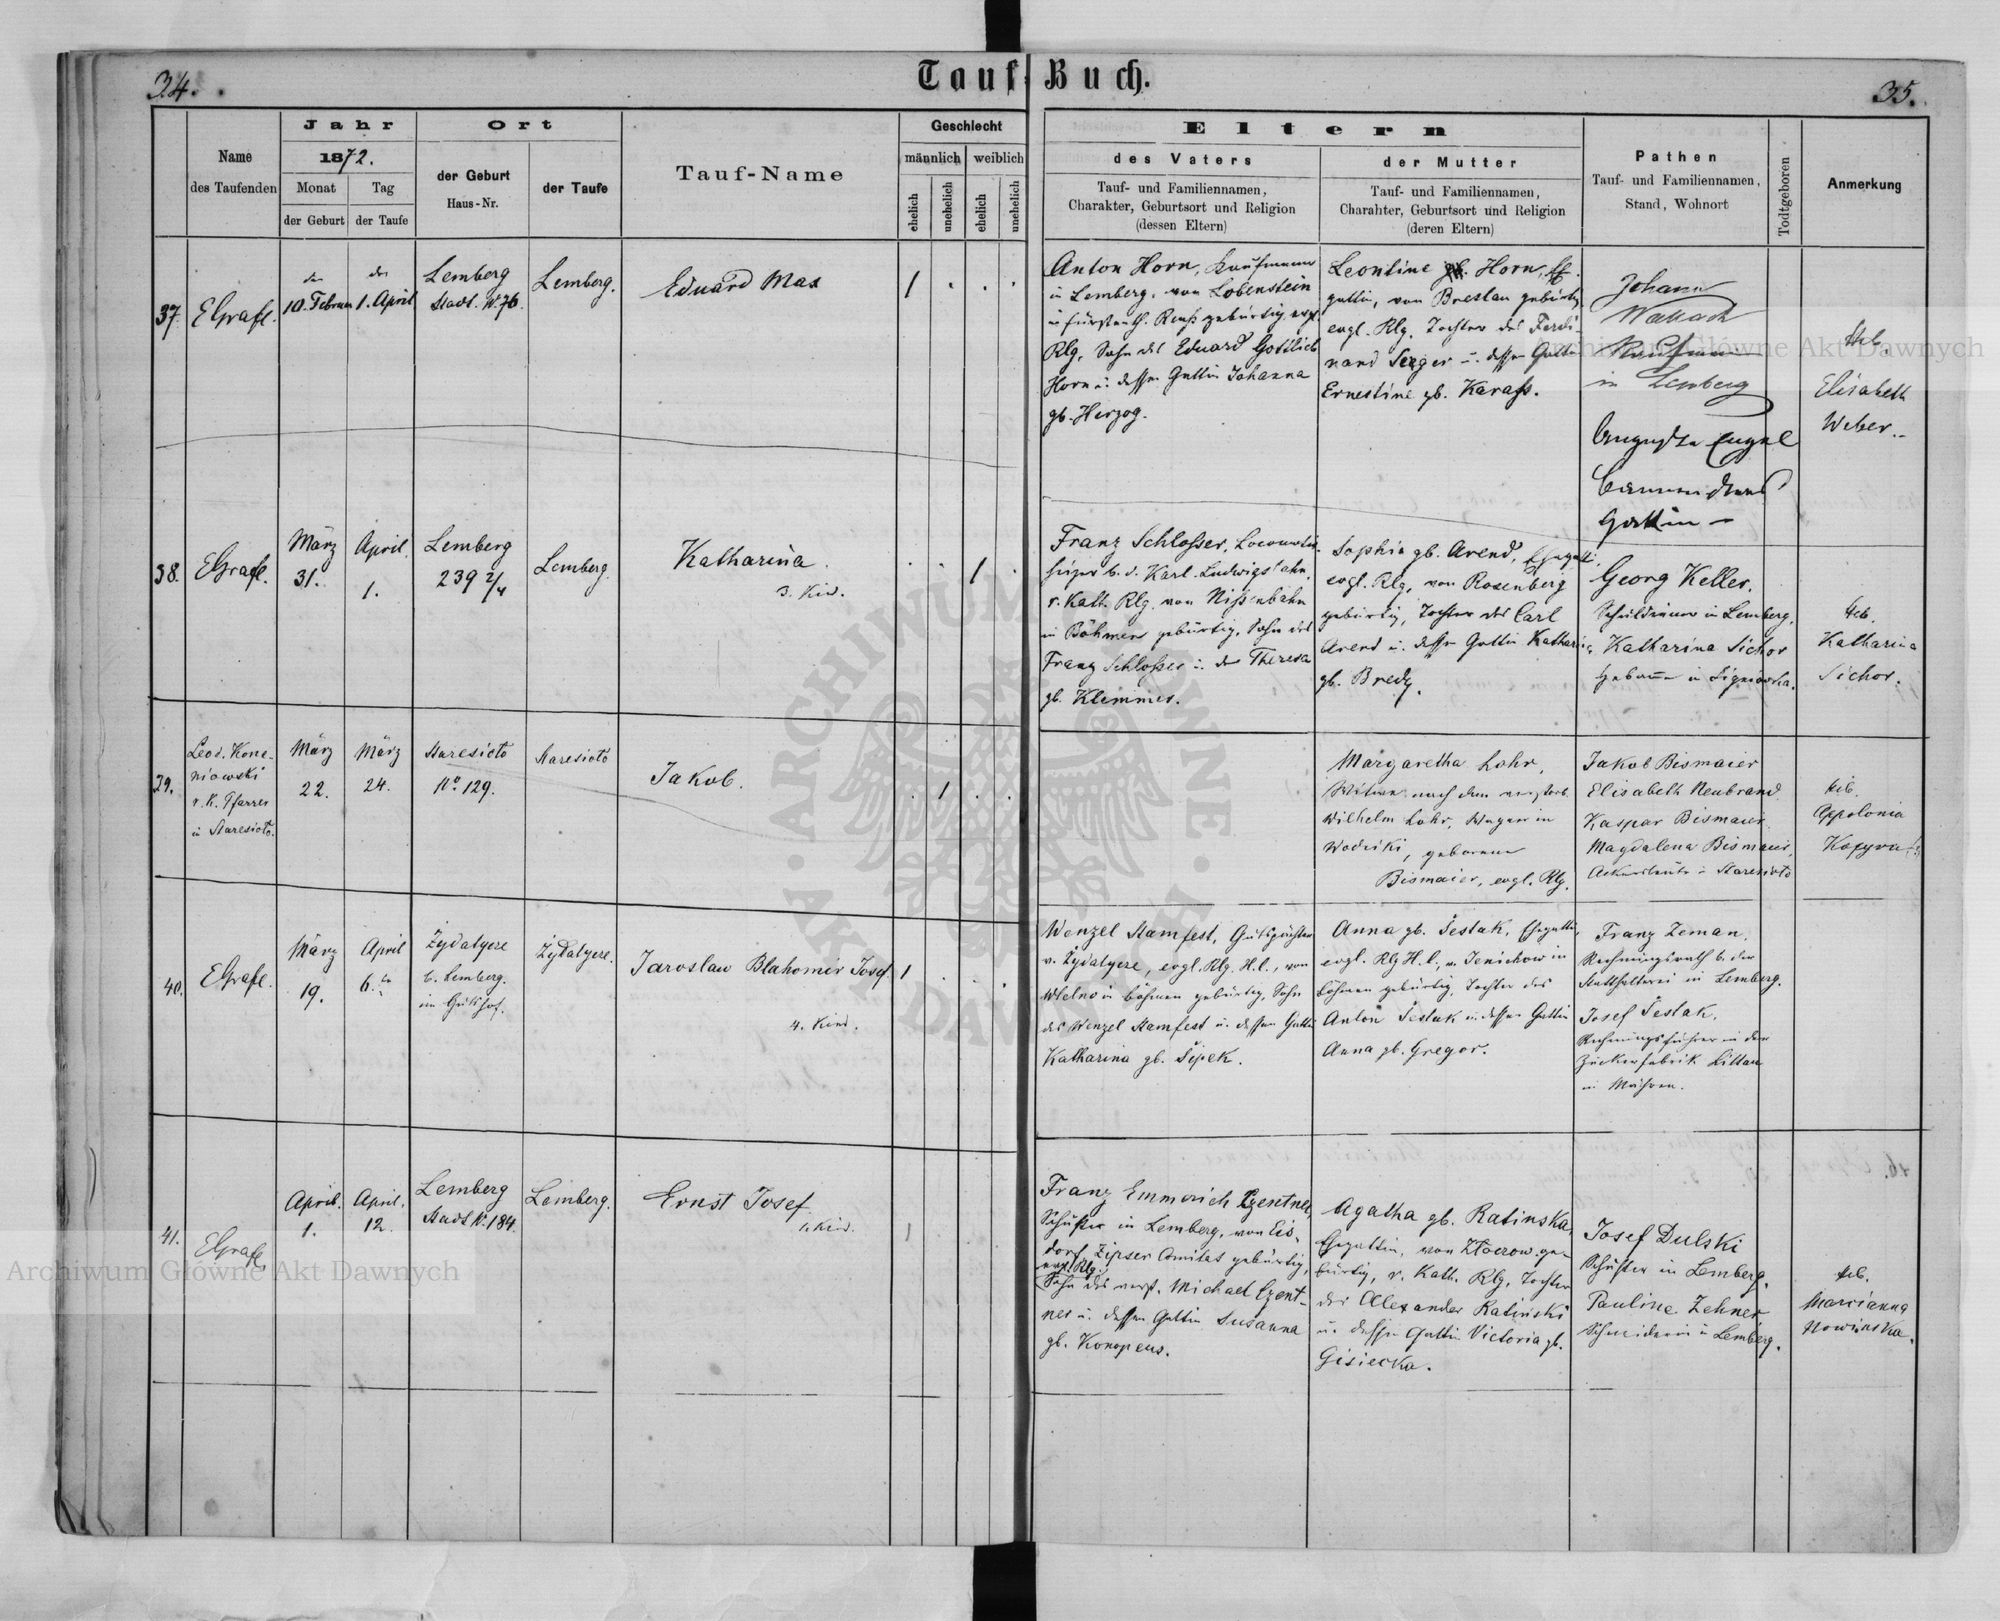 34.
Tauf-Buch.
35.
Name
des Taufenden
Jahr
1872.
Monat
der Geburt
Tag
der Taufe
Ort
der Geburt
Haus-Nr.
der Taufe
Tauf-Name
Geschlecht
männlich
weiblich
ehelich
unehelich
ehelich
unehelich
Eltern
des Vaters
Tauf- und Familiennamen,
Charakter, Geburtsort und Religion
(dessen Eltern)
der Mutter
Tauf- und Familiennamen,
Charahter, Geburtsort und Religion
(deren Eltern)
Pathen
Tauf- und Familiennamen,
Stand, Wohnort
Todtgeboren
Anmerkung
37.
EGrafe.
den
10. Februar
den
1. April
Lemberg
Stadt. No 76.
Lemberg.
Eduard Max
1
Anton Horn, Kaufmann
in Lemberg, von Lobenstein
in Fürstenth. Reuss gebürtig, evgl.
Rlg, Sohn des Eduard Gottlieb
Horn u. dessen Gattin Johanna
gb. Herzog.
Leontine gb. Horn,
gattin, von Breslau gebürtig
evgl. Rlg. Tochter des Ferdi-
nand Seeger u. dessen Gattin
Ernestine gb. Karass.
Johann
Wallach
Kaufmann
in Lemberg
Augusta Engel
Gattin
Heb.
Elisabeth
Weber.
38.
EGrafe.
März
31.
April
1.
Lemberg
239 2/4
Lemberg.
Katharina
3. Kind.
1
Franz Schlosser, Locomotiv-
heizer b. d. Karl-Ludwigsbahn,
r. Kath. Rlg. von
in Böhmen gebürtig, Sohn des
Franz Schlosser u. der Theresa
gb. Klemmer.
Sophia gb. Arend, Ehegatti,
evgl. Rlg, von Rosenberg
gebürtig, Tochter des Carl
Arend u. dessen Gattin Katharina
gb. Bredy.
Georg Keller,
Schuldiener in Lemberg.
Katharina Sichor
Hebamme in Signiowka.
Heb.
Katharina
Sichor.
39.
Leod. Kone-
niowski
r. K. Pfarrer
in Staresioło.
März
22.
März
24.
Staresioło
No 129.
Staresioło
Jakob.
1
Margaretha Lohr,
Witwe nach dem verstorb.
Wilhelm Lohr, Wagner in
Wodniki, geborene
Bismaier, evgl. Rlg.
Jakob Bismaier
Elisabeth Neubrand
Kaspar Bismaier
Magdalena Bismaier,
Ackersleute in Staresioło
Heb.
Appolonia
40.
EGrafe.
März
19.
April
6.
Żydatycze
b. Lemberg.
im Gutshof.
Żydatycze.
Jaroslaw Blahomir Josef
4. Kind.
1
Wenzel Stamfest, Gutspächter
v. Żydatycze, evgl. Rlg. H.C., von
Wtelno in Böhmen gebürtig, Sohn
des Wenzel Stamfest u. dessen Gattin
Katharina gb. Šipek.
Anna gb. Šestak, Ehegattin,
evgl. Rlg H.C., v. Jenichow in
Böhmen gebürtig, Tochter des
Anton Šestak u. dessen Gattin
Anna gb. Gregor.
Franz Zeman,
Rechnungsrath b. der
Statthalterei in Lemberg.
Josef Šestak,
Rechnungsführer in der
Zuckerfabrik Littau
in Mähren.
41.
EGrafe.
April.
1.
April.
12.
Lemberg
Stadt No. 184.
Lemberg.
Ernst Josef
1. Kind.
1
Franz Emmerich Czentner,
Schuster in Lemberg, von Eis-
dorf, Zipser Comitat gebürtig,
evgl. Rlg.
Sohn des verst. Michael Czent-
ner u. dessen Gattin Susanna
gb. Konopeus.
Agatha gb. Ratinska,
Ehegattin, von Złoczow ge-
bürtig, r. Kath. Rlg, Tochter
des Alexander Ratinski
u. dessen Gattin Victoria gb.
Gisiecka.
Josef Dulski
Schuster in Lemberg.
Pauline Zehner,
Schneiderin in Lemberg.
Heb.
Marcianna
Nowinska.
Archiwum Główne Akt Dawnych
Archiwum Główne Akt Dawnych
ARCHIWUM GŁÓWNE AKT DAWNYCH